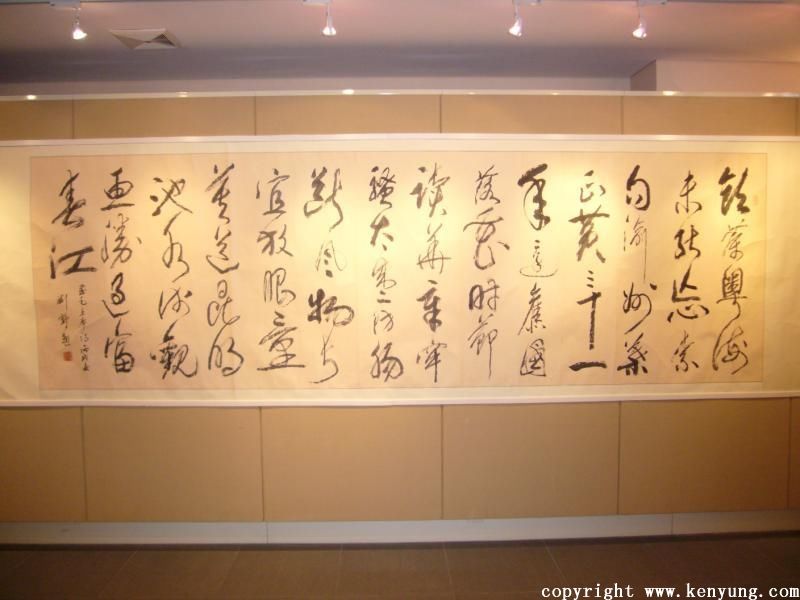 飲茶粵海
未能忘索
句渝州葉
正黄三十一
年還舊國
落花時節
讀華章牢
騷太盛防腸
斷風物長
宜放眼量
莫道昆明
池水浅觀
魚勝過富
春江
copyright www.kenyung.com